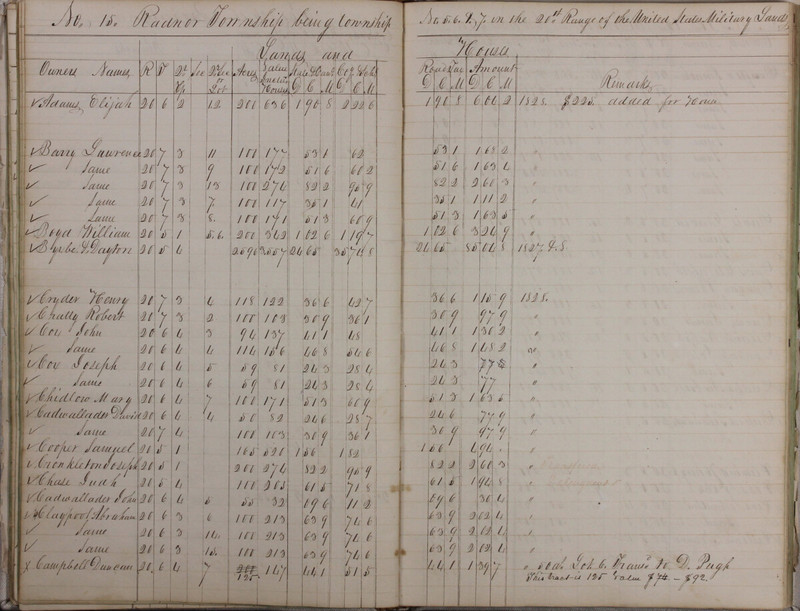 No. 15. Radnor Township being township No. 5. 6. & 7. in the 20th Range of the United States Military Lands
Lands and Houses
Owners Names R T Qr Tp Sec Lot Acres Value Houses State & Canal Co. & School Road Tax Amount Remarks
D C M D C M D C M D C M
Adams, Elijah 20 6 2 12 200 636 1 90 8 2 22 6 1 90 8 6 04 2 1828. $225 added for House
Barry Lawrence 20 7 3 11 100 177 53 1 62 53 1 1 68 2 "
Same 20 7 3 9 100 172 51 6 60 2 51 6 1 63 4 "
Same 20 7 3 13 100 274 82 2 95 9 82 2 2 60 3 "
Same 20 7 3 7 100 117 35 1 41 35 1 1 11 2 "
Same 20 7 3 8 100 171 51 3 60 9 51 3 1 63 5 "
Boyd William 20 5 1 5.6. 200 342 1 02 6 1 19 7 1 02 6 3 24 9 "
Dayton 20 5 4 24 65 24 65 85 04 8 1827 & 8
Cryder Henry 20 7 3 4 118 122 36 6 42 7 36 6 1 15 9 1828.
Robert 20 7 3 2 100 103 30 9 36 1 30 9 97 9 "
Cox John 20 6 4 3 94 137 41 1 48 41 1 1 30 2 "
Same 20 6 4 4 114 156 46 8 54 6 46 8 1 48 2 "
Cox Joseph 20 6 4 5 59 81 24 3 28 4 24 3 77 "
Same 20 6 4 6 59 81 24 3 28 4 24 3 77 "
Chidlow Mary 20 6 4 7 100 171 51 3 60 9 51 3 1 63 5 "
Cadwallader David 20 6 4 4 50 82 24 6 28 7 24 6 77 9 "
Same 20 7 4 100 103 30 9 36 1 30 9 97 9 "
Cooper Samuel 20 5 1 165 520 1 56 1 82 1 56 4 94 "
Cronkleton Joseph 20 5 1 200 274 82 2 95 9 82 2 2 60 3 "
Chase Judh 20 5 4 100 205 61 5 71 8 61 5 1 94 8 "
Cadwallader John 20 6 4 5 55 32 09 6 11 2 09 6 30 4 "
Claypool Abraham 20 6 3 6 100 213 63 9 74 6 63 9 2 02 4 "
Same 20 6 3 14 100 213 63 9 74 6 63 9 2 02 4 "
Same 20 6 3 15 100 213 63 9 74 6 63 9 2 02 4 "
Campbell Duncan 20 6 4 7 125 147 44 1 51 5 44 1 1 39 7 " Lot 6. to D. Pugh
This tract is 125 Value $74 - $92